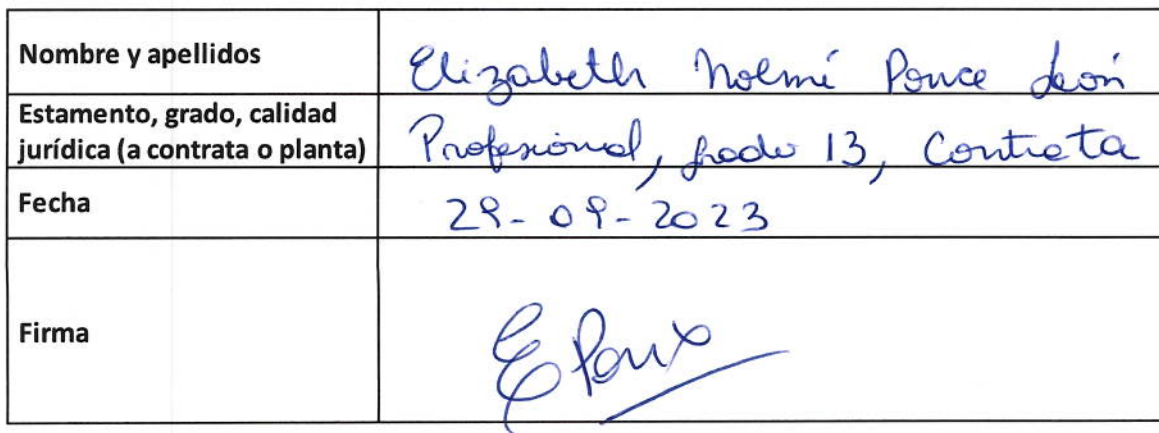 Nombre y apellidos
Elizabeth Noemí Ponce León
Estamento, grado, calidad
jurídica (a contrata o planta)
Profesional, grado 13, Contrata
Fecha
29-09-2023
Firma
EPonce